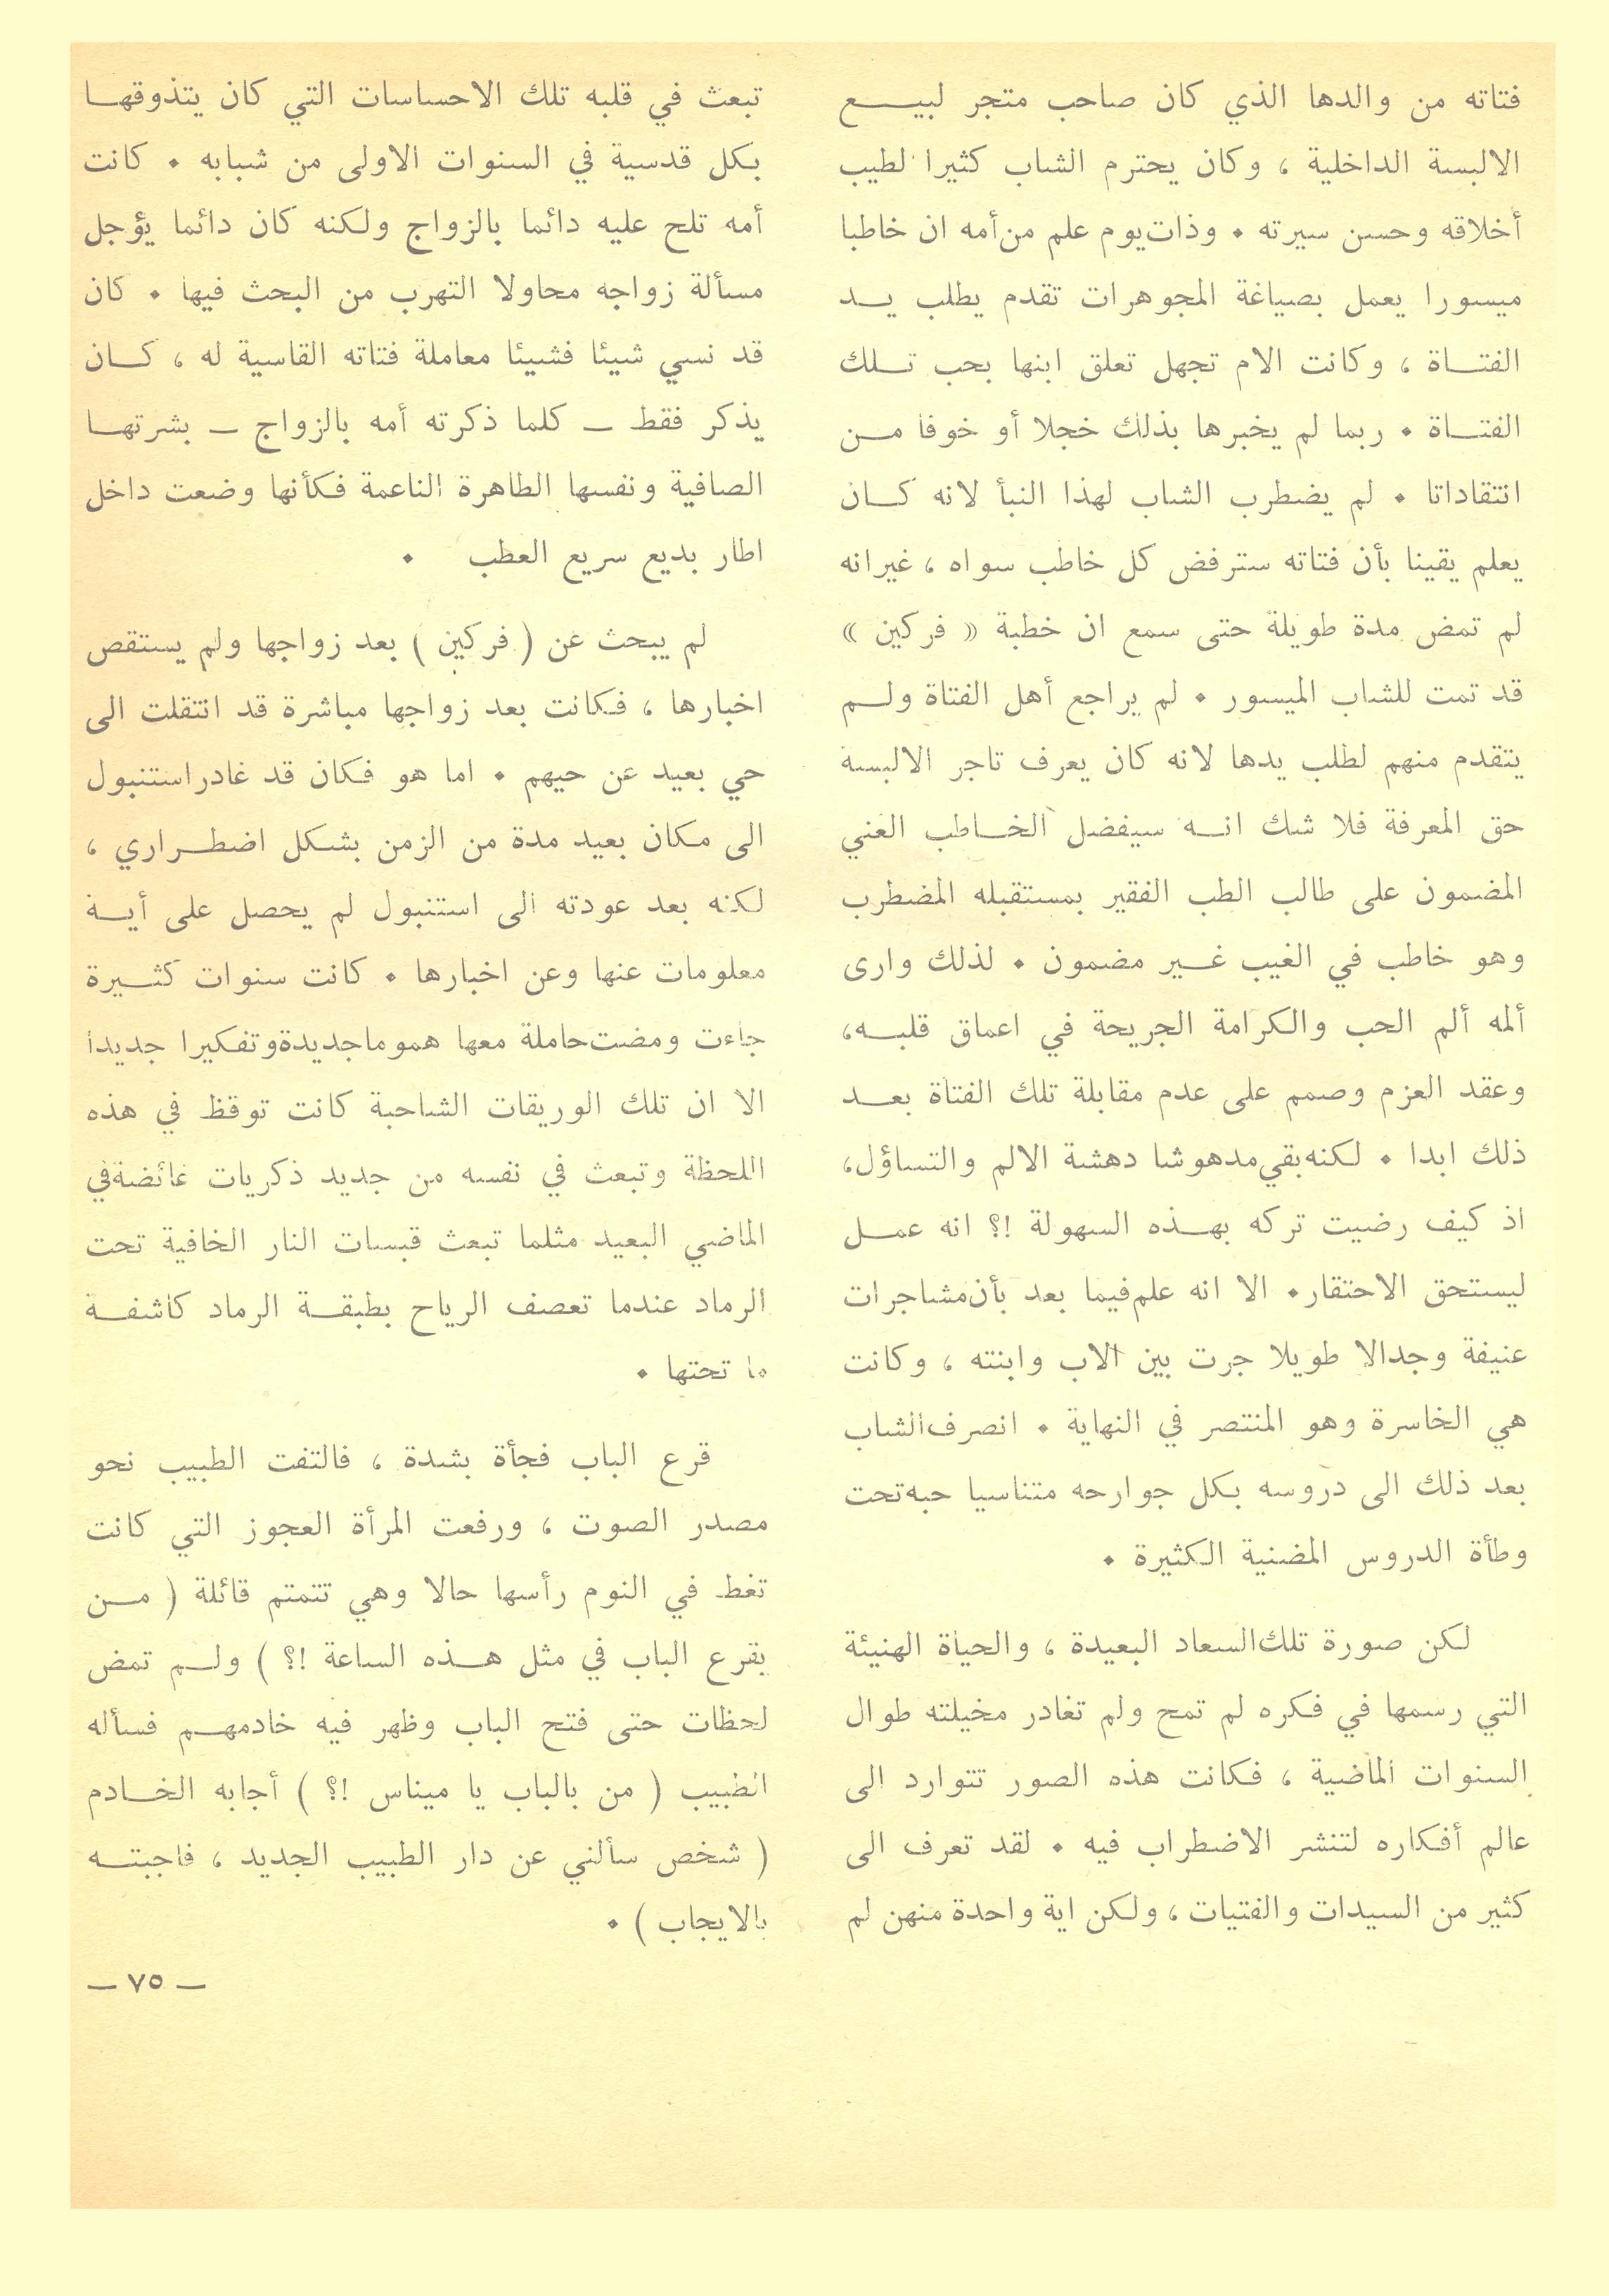 فتاته من والدها الذي كان صاحب متجر لبيع
الالبسة الداخلية ، وكان يحترم الشاب كثيرا لطيب
أخلاقه وحسن سيرته • وذات يوم علم من أمه ان خاطبا
ميسورا يعمل بصياغة المجوهرات تقدم يطلب يد
الفتاة ، وكانت الام تجهل تعلق ابنها بحب تلك
الفتاة • ربما لم يخبرها بذلك خجلا أو خوفا من
انتقاداتا • لم يضطرب الشاب لهذا النبأ لانه كان
يعلم يقينا بأن فتاته سترفض كل خاطب سواه ، غير انه
لم تمض مدة طويلة حتى سمع ان خطبة « فركين »
قد تمت للشاب الميسور • لم يراجع أهل الفتاة ولم
يتقدم منهم لطلب يدها لانه كان يعرف تاجر الالبسة
حق المعرفة فلا شك انه سيفضل الخاطب الغني
المضمون على طالب الطب الفقير بمستقبله المضطرب
وهو خاطب في الغيب غير مضمون • لذلك وارى
ألمه ألم الحب والكرامة الجريحة في اعماق قلبه،
وعقد العزم وصمم على عدم مقابلة تلك الفتاة بعد
ذلك ابدا • لكنه بقي مدهوشا دهشة الالم والتساؤل،
اذ كيف رضيت تركه بهذه السهولة !؟ انه عمل
ليستحق الاحتقار• الا انه علم فيما بعد بأن مشاجرات
عنيفة وجدالا طويلا جرت بين الاب وابنته ، وكانت
هي الخاسرة وهو المنتصر في النهاية • انصرف الشاب
بعد ذلك الى دروسه بكل جوارحه متناسيا حبه تحت
وطأة الدروس المضنية الكثيرة •
لكن صورة تلك السعاد البعيدة ، والحياة الهنيئة
التي رسمها في فكره لم تمح ولم تغادر مخيلته طوال
السنوات الماضية ، فكانت هذه الصور تتوارد الى
عالم أفكاره لتنشر الاضطراب فيه • لقد تعرف الى
كثير من السيدات والفتيات ، ولكن اية واحدة منهن لم
تبعث في قلبه تلك الاحساسات التي كان يتذوقها
بكل قدسية في السنوات الاولى من شبابه • كانت
أمه تلح عليه دائما بالزواج ولكنه كان دائما يؤجل
مسألة زواجه محاولا التهرب من البحث فيها • كان
قد نسي شيئا فشيئا معاملة فتاته القاسية له ، كان
يذكر فقط – كلما ذكرته أمه بالزواج – بشرتها
الصافية ونفسها الطاهرة الناعمة فكأنها وضعت داخل
اطار بديع سريع العطب •
لم يبحث عن ( فركين ) بعد زواجها ولم يستقص
اخبارها ، فكانت بعد زواجها مباشرة قد انتقلت الى
حي بعيد عن حيهم • اما هو فكان قد غادر استنبول
الى مكان بعيد مدة من الزمن بشكل اضطراري ،
لكنه بعد عودته الى استنبول لم يحصل على أية
معلومات عنها وعن اخبارها • كانت سنوات كثيرة
جاءت ومضت حاملة معها هموما جديدة وتفكيرا جديدا
الا ان تلك الوريقات الشاحبة كانت توقظ في هذه
اللحظة وتبعث في نفسه من جديد ذكريات غائضة في
الماضي البعيد مثلما تبعث قبسات النار الخافية تحت
الرماد عندما تعصف الرياح بطبقة الرماد كاشفة
ما تحتها •
قرع الباب فجأة بشدة ، فالتفت الطبيب نحو
مصدر الصوت ، ورفعت المرأة العجوز التي كانت
تغط في النوم رأسها حالا وهي تتمتم قائلة ( من
يقرع الباب في مثل هذه الساعة !؟ ) ولم تمض
لحظات حتى فتح الباب وظهر فيه خادمهم فسأله
الطبيب ( من بالباب يا ميناس !؟ ) أجابه الخادم
( شخص سألني عن دار الطبيب الجديد ، فاجبته
بالايجاب ) •
– ٧٥ –